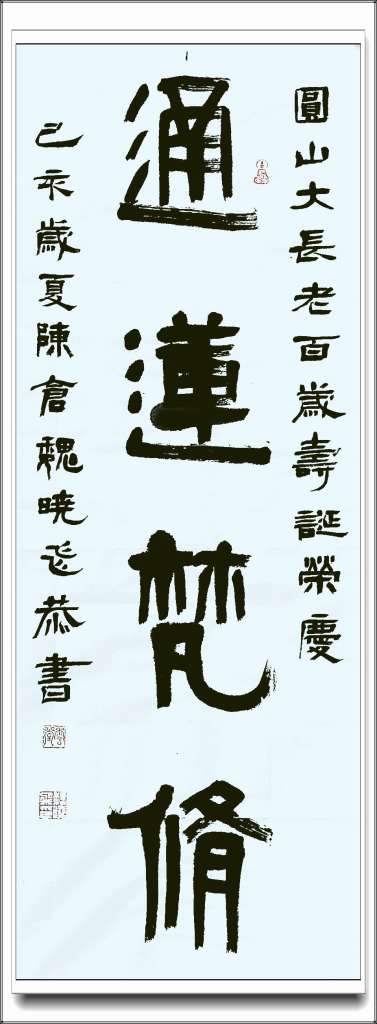 圓山大長老百歲壽誕榮慶
通蓮梵脩
己亥歲夏陳倉魏曉恭書